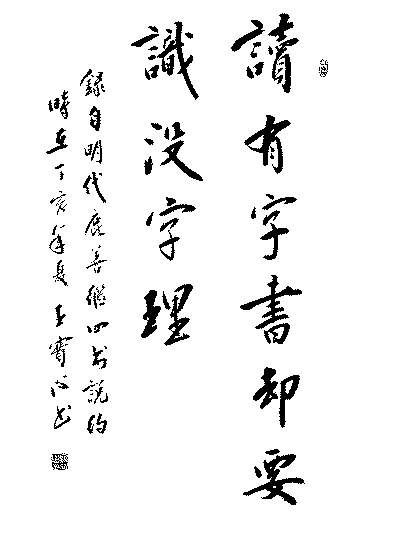 讀有字書却要
識没字理
録自明代鹿善繼四書說約
時在丁亥年夏王寶心書